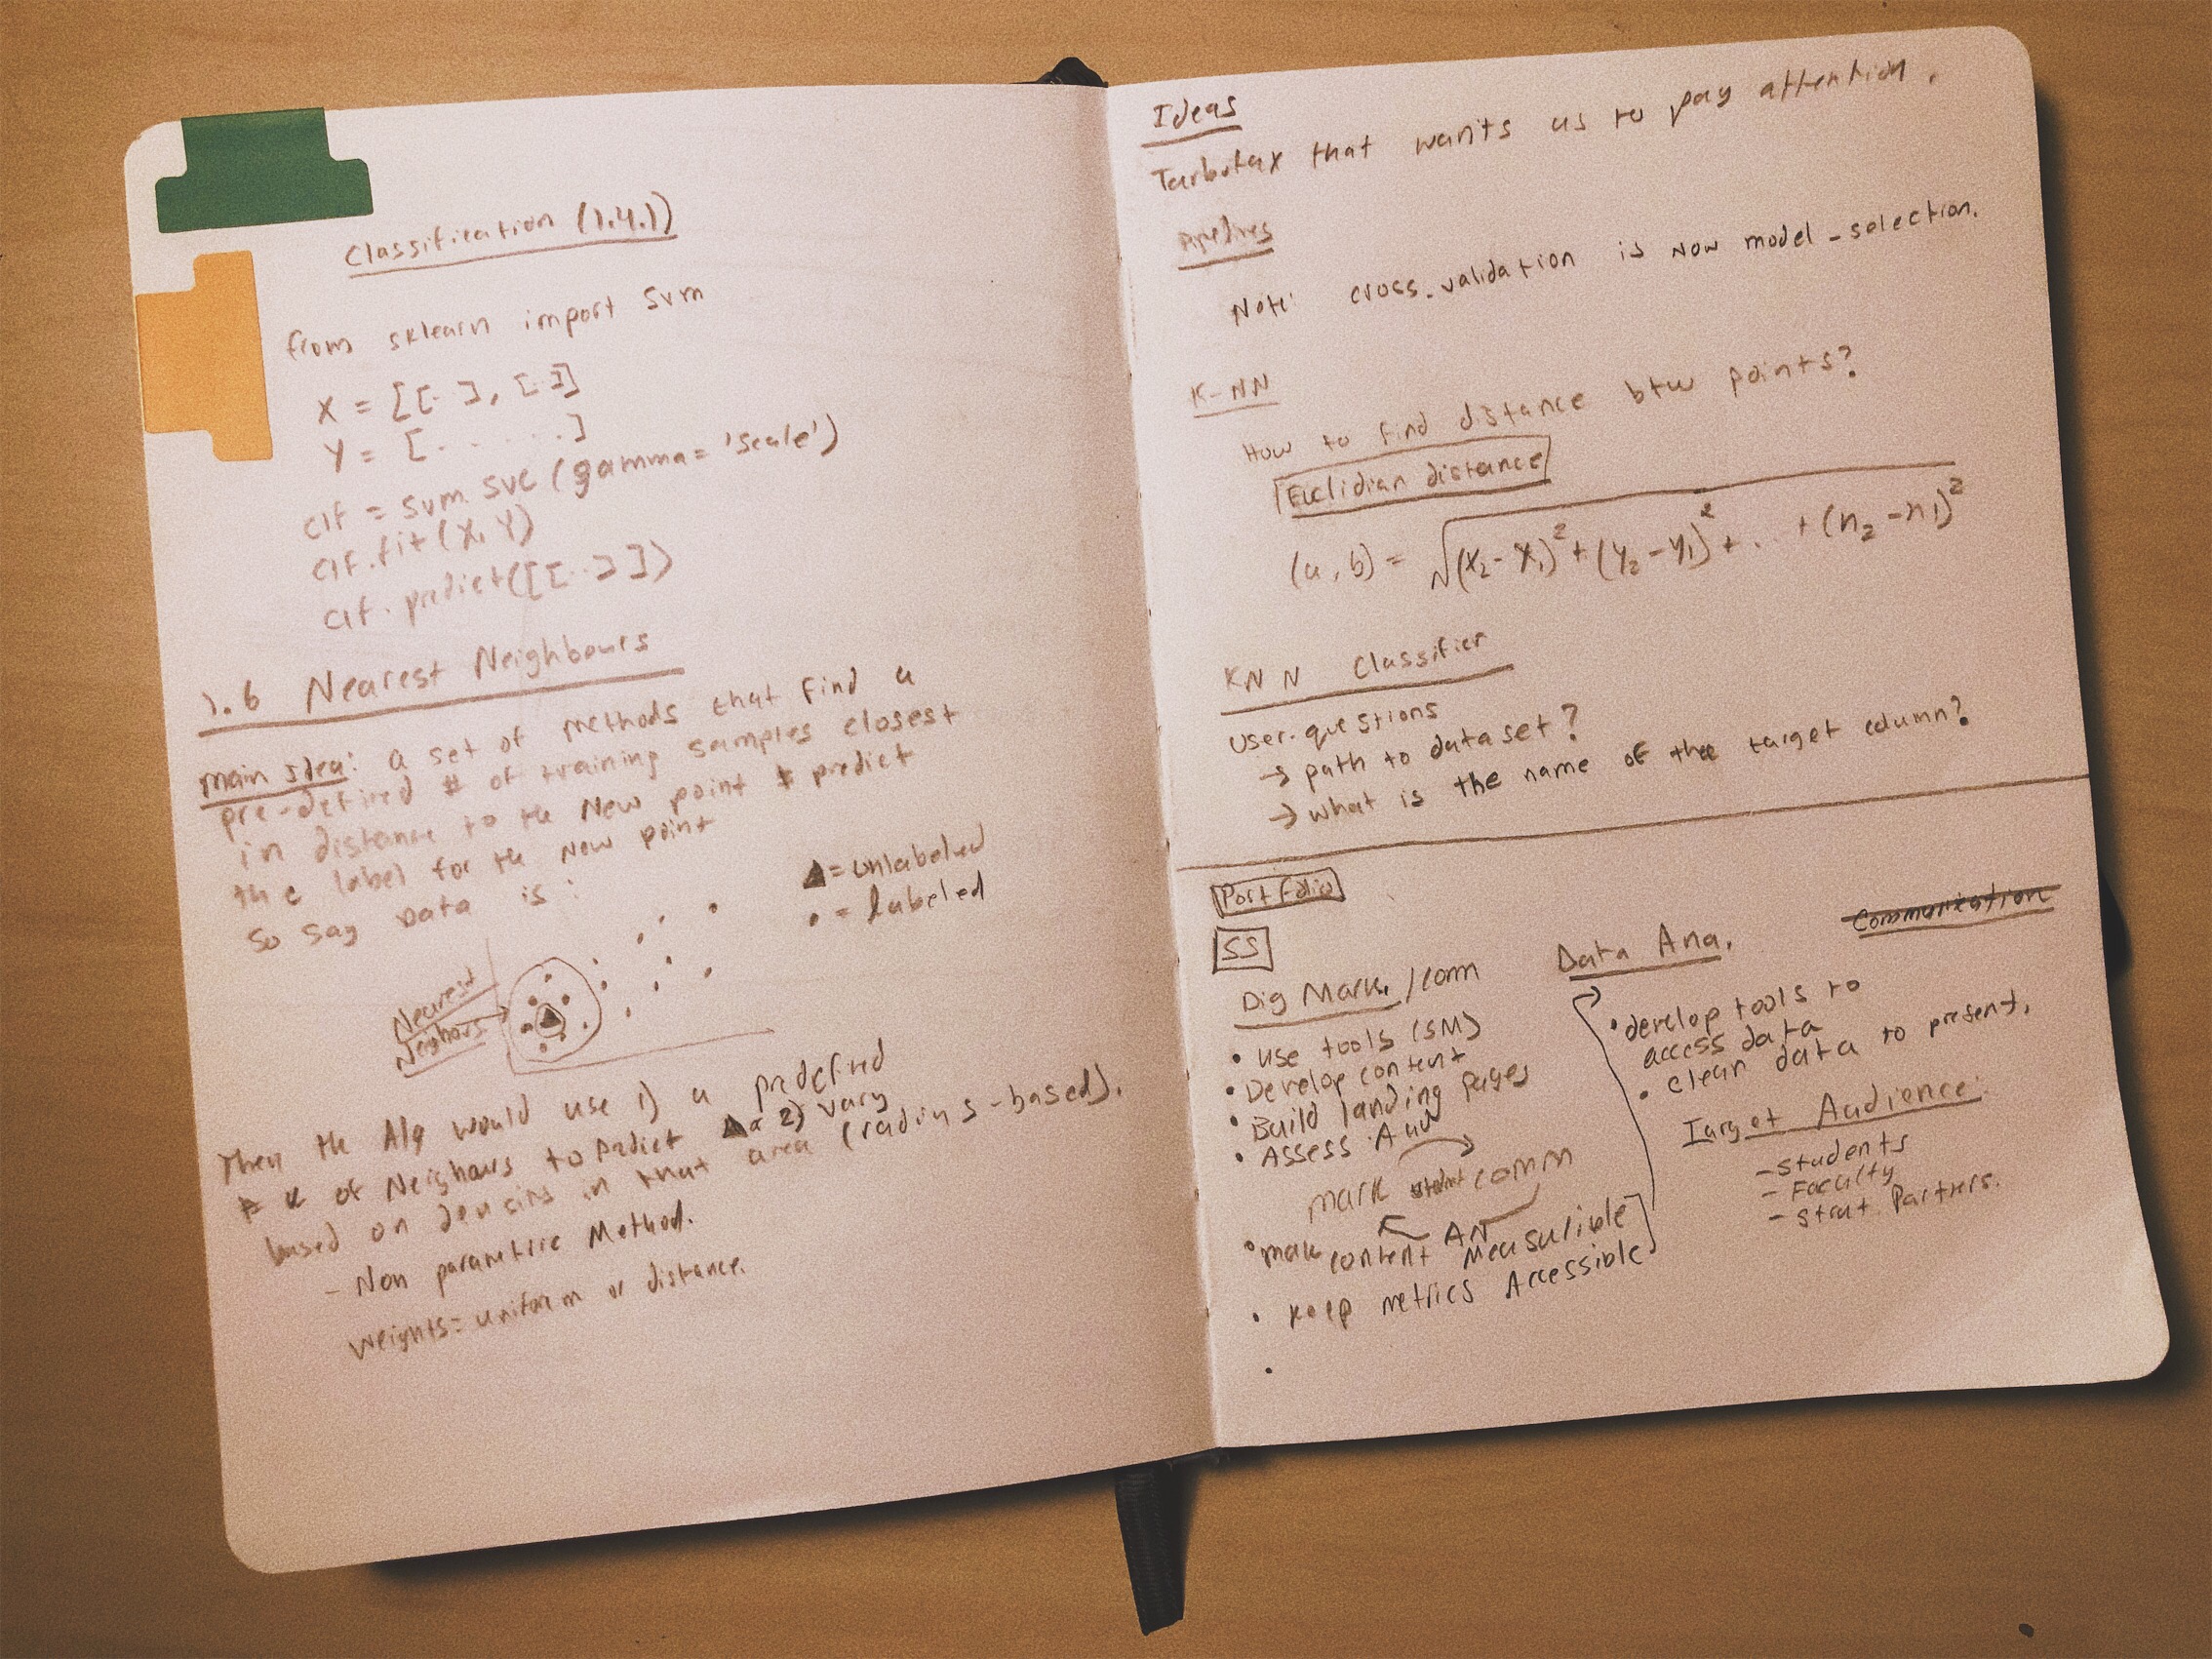 Classification (1.4.1)
from sklearn import svm
X = [[. ], [.]]
Y = [. . . . . .]
clf = svm.SVC (gamma = 'scale')
clf.fit(X, Y)
clf.predict([[..]])
1.6 Nearest Neighbours
main Idea: a set of methods that find a
pre-defined # of training samples closest
in distance to the New point & predict
the label for the New point
So Say Data is:
▲ = unlabeled
• = labeled
Nearest
Neighours
Then the Alg would use 1) a predefined
# K of Neighours to predict ▲ or 2) vary
based on density in that area (radius-based).
- Non parametric Method.
weights = uniform or distance.
Ideas
Turbotax that wants us to pay attention.
Pipelines
Note: cross_validation is now model_selection.
K-NN
How to find distance btw points?
Euclidian distance
(a, b) = √(x₂-x₁)² + (y₂-y₁)² + .. + (n₂-n₁)²
KNN Classifier
User questions
→ path to dataset?
→ what is the name of the target column?
Portfolio
SS
Communication
Dig Mark. / comm
• use tools (SM)
• Develop content
• Build landing pages
• Assess Aud
mark comm
AN
• make content Measurible
• keep metrics Accessible
•
Data Ana.
• develop tools to
access data
• clean data to present.
Target Audience:
- Students
- Faculty
- Strat. Partners.